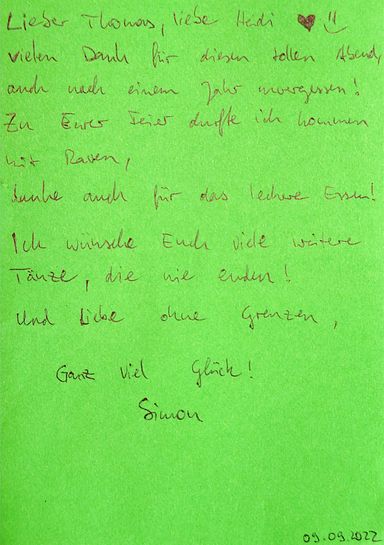 Lieber Thomas, liebe Heidi ♥ !!
vielen Dank für diesen tollen Abend,
auch nach einem Jahr unvergessen!
Zu Eurer Feier durfte ich kommen
mit Raven,
danke auch für das leckere Essen!
Ich wünsche Euch viele weitere
Tänze, die nie enden!
Und Liebe ohne Grenzen,
Ganz viel Glück!
Simon
09.09.2022